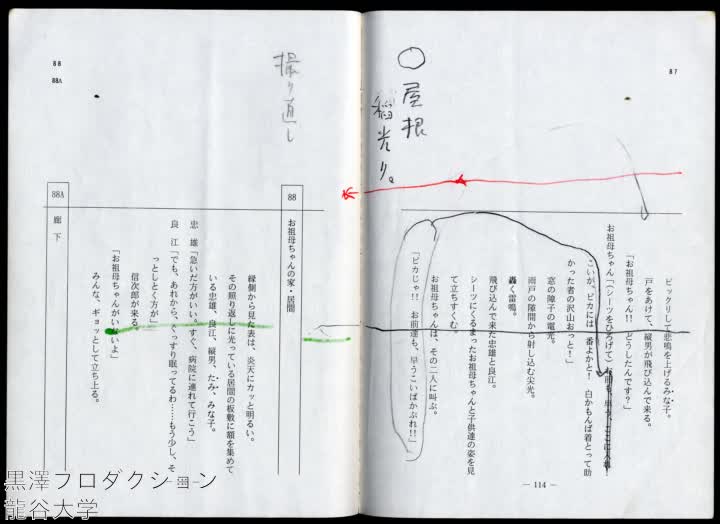 87
○屋根
稲光り。
ビックリして悲鳴を上げるみな子。
戸をあけて、縦男が飛び込んで来る。
「お祖母ちゃん!! どうしたんです?」
お祖母ちゃん「(シーツをひろげて)お前も、早う、ここに入
こいが、ピカには一番よかと! 白かもんば着とって助
かった者の沢山おっと!」
窓の障子の電光。
雨戸の隙間から射し込む尖光。
轟く雷鳴。
飛び込んで来た忠雄と良江。
シーツにくるまったお祖母ちゃんと子供達の姿を見
て立ちすくむ。
お祖母ちゃんは、その二人に叫ぶ。
「ピカじゃ!! お前達も、早うこいばかぶれ!!」
— 114 —
88
88A
撮り直し
88 お祖母ちゃんの家・居間
縁側から見た表は、炎天にカッと明るい。
その照り返しに光っている居間の板敷に額を集めて
いる忠雄、良江、縦男、たみ、みな子。
忠 雄「急いだ方がいい。すぐ、病院に連れて行こう」
良 江「でも、あれから、ぐっすり眠ってるわ……もう少し、そ
っとしとく方が」
信次郎が来る。
「お祖母ちゃんがいないよ」
みんな、ギョッとして立ち上る。
88A 廊 下
黒澤プロダクション
龍谷大学